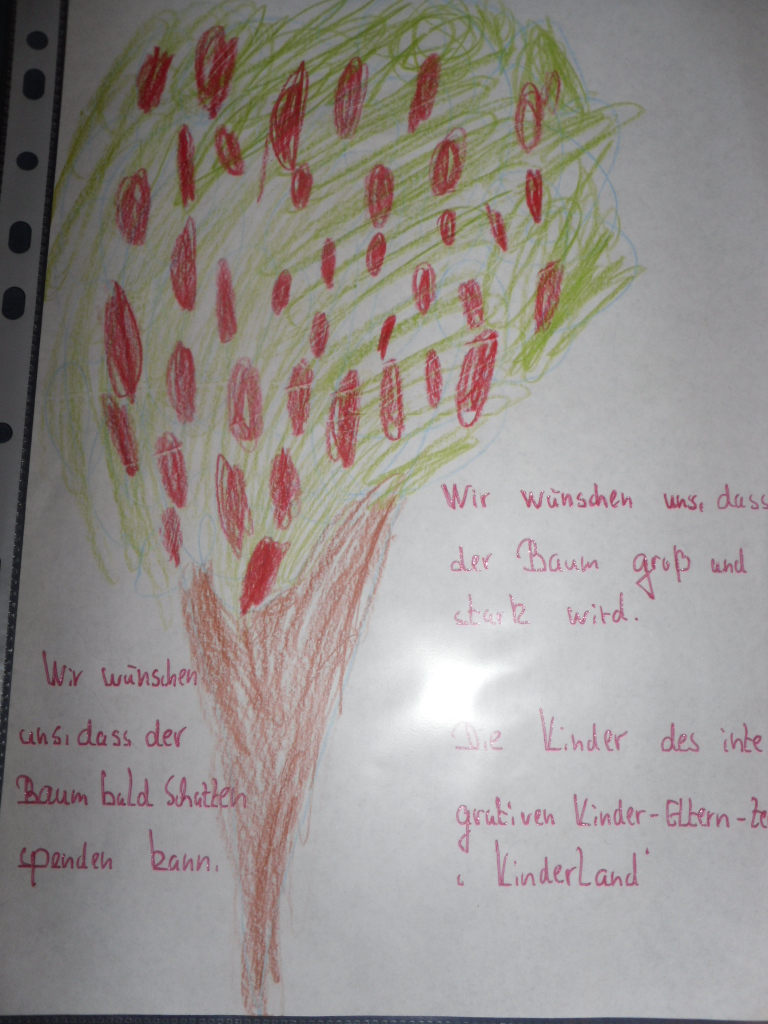 Wir wünschen
uns, dass der
Baum bald Schatten
spenden kann.
Wir wünschen uns, dass
der Baum groß und
stark wird.
Die Kinder des inte
grativen Kinder-Eltern-Ze
" KinderLand"